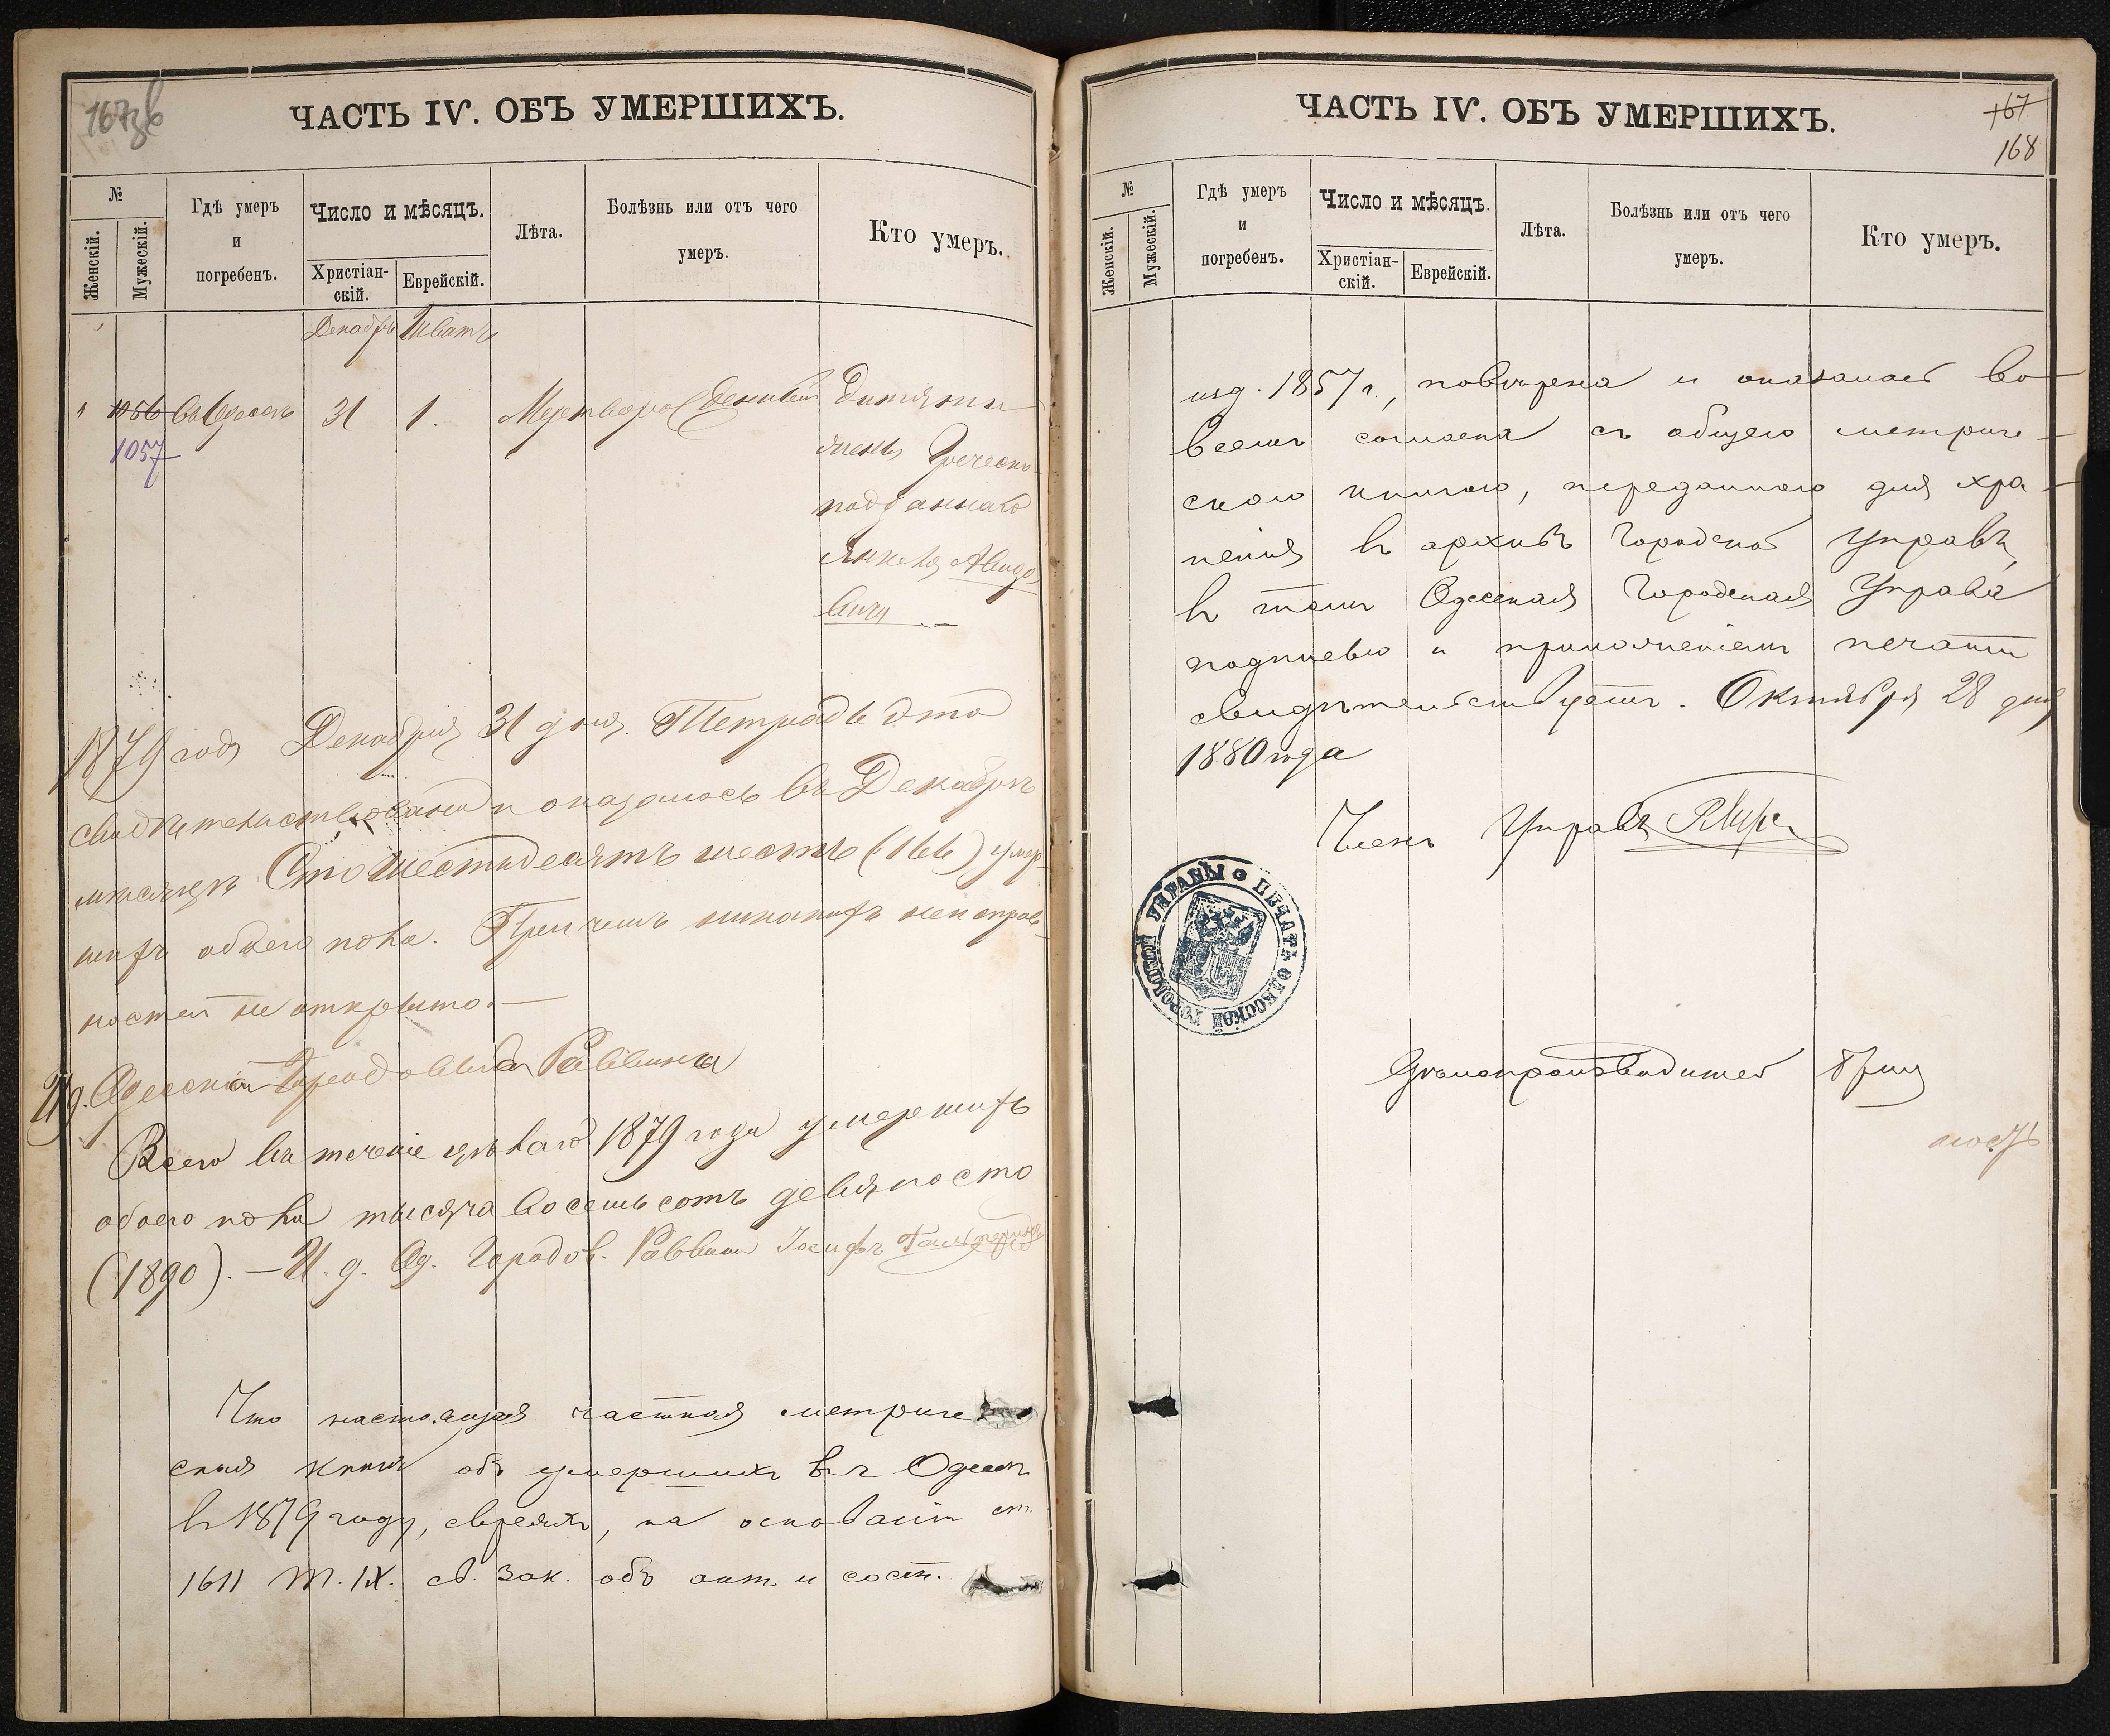 167об
ЧАСТЬ IV. ОБЪ УМЕРШИХЪ.
№
Женскій.
Мужескій.
Гдѣ умеръ
и
погребенъ.
Число и мѣсяцъ.
Христіан-
скій.
Еврейскій.
Лѣта.
Болѣзнь или отъ чего
умеръ.
Кто умеръ.
Декабрь Шватъ
1056 въ Одессѣ 31 1. Мертворожденный Дитя
1057
Греческо-
подданнаго
Янкеля Авидо
вича
1879 года Декабря 31 дня. Тетрадь эта
свидѣтельствована и оказалось въ Декабрѣ
мѣсяцѣ Сто шестьдесятъ шесть (166) умер-
шихъ обоего пола. При чемъ никакихъ неисправ-
ностей не открыто.—
И. д. Одесскаго Городоваго Раввина
Всего въ теченіе цѣлаго 1879 года умершихъ
обоего пола тысяча восемьсотъ девяносто
(1890).— И. д. Од. Городов. Раввина Іосифъ
Что настоящая частная метриче
ская книга объ умершихъ въ г. Одессѣ
въ 1879 году, евреяхъ, на основаніи ст.
1611 т. IX. св. зак. объ акт. и сост.
ЧАСТЬ IV. ОБЪ УМЕРШИХЪ.
167
168
№
Женскій.
Мужескій.
Гдѣ умеръ
и
погребенъ.
Число и мѣсяцъ.
Христіан-
скій.
Еврейскій.
Лѣта.
Болѣзнь или отъ чего
умеръ.
Кто умеръ.
изд. 1857 г., повѣрена и оказалась во
всемъ согласна съ общею метриче-
скою книгою, переданною для хра-
ненія въ архивъ Городской Управы,
въ томъ Одесская Городская Управа
подписью и приложеніемъ печати
свидѣтельствуетъ. Октября 28 дня
1880 года
Членъ Управы
ПЕЧАТЬ ОДЕССКОЙ ГОРОДСКОЙ УПРАВЫ
Дѣлопроизводитель